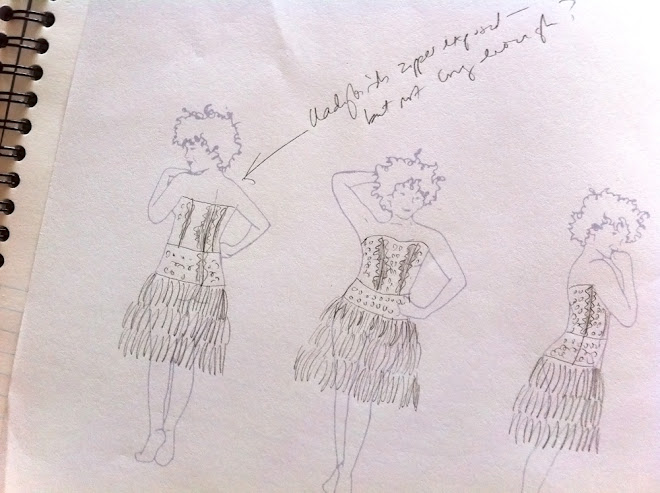 zipper exposed —
but not long enough?